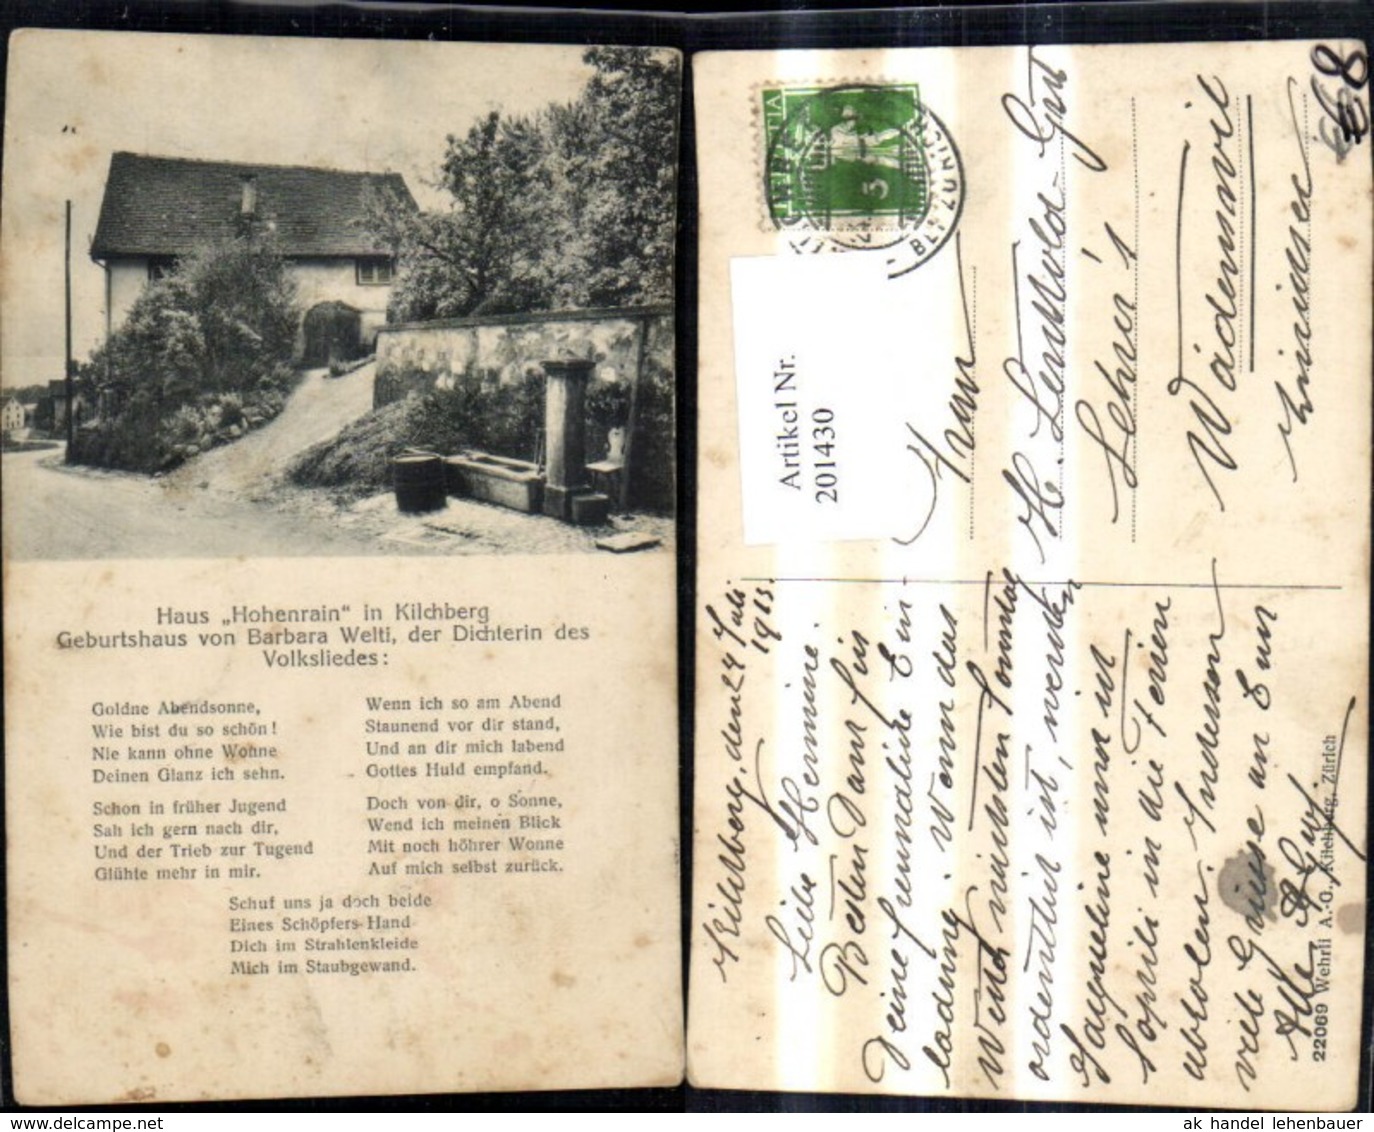 Haus „Hohenrain“ in Kilchberg
Geburtshaus von Barbara Welti, der Dichterin des
Volksliedes:
Goldne Abendsonne,
Wie bist du so schön!
Nie kann ohne Wonne
Deinen Glanz ich sehn.
Schon in früher Jugend
Sah ich gern nach dir,
Und der Trieb zur Tugend
Glühte mehr in mir.
Wenn ich so am Abend
Staunend vor dir stand,
Und an dir mich labend
Gottes Huld empfand.
Doch von dir, o Sonne,
Wend ich meinen Blick
Mit noch höhrer Wonne
Auf mich selbst zurück.
Schuf uns ja doch beide
Eines Schöpfers Hand
Dich im Strahlenkleide
Mich im Staubgewand.
Kilchberg, den 24 Juli
1913.
Liebe Hermine.
Besten Dank für
Deine freundliche Ein-
ladung. Wenn das
Wetter nächsten Sonntag
ordentlich ist, werden
Jaqueline und ich
Sophili in die Ferien
abholen. Indessen
viele Grüsse an Euch
Alle
HELVETIA
Frau
H. Leuthold-Gut
Lehrer's
Wädenswil
Zürichsee
€8
Artikel Nr.
201430
22069 Wehrli A.-G., Kilchberg, Zürich
ak handel lehenbauer